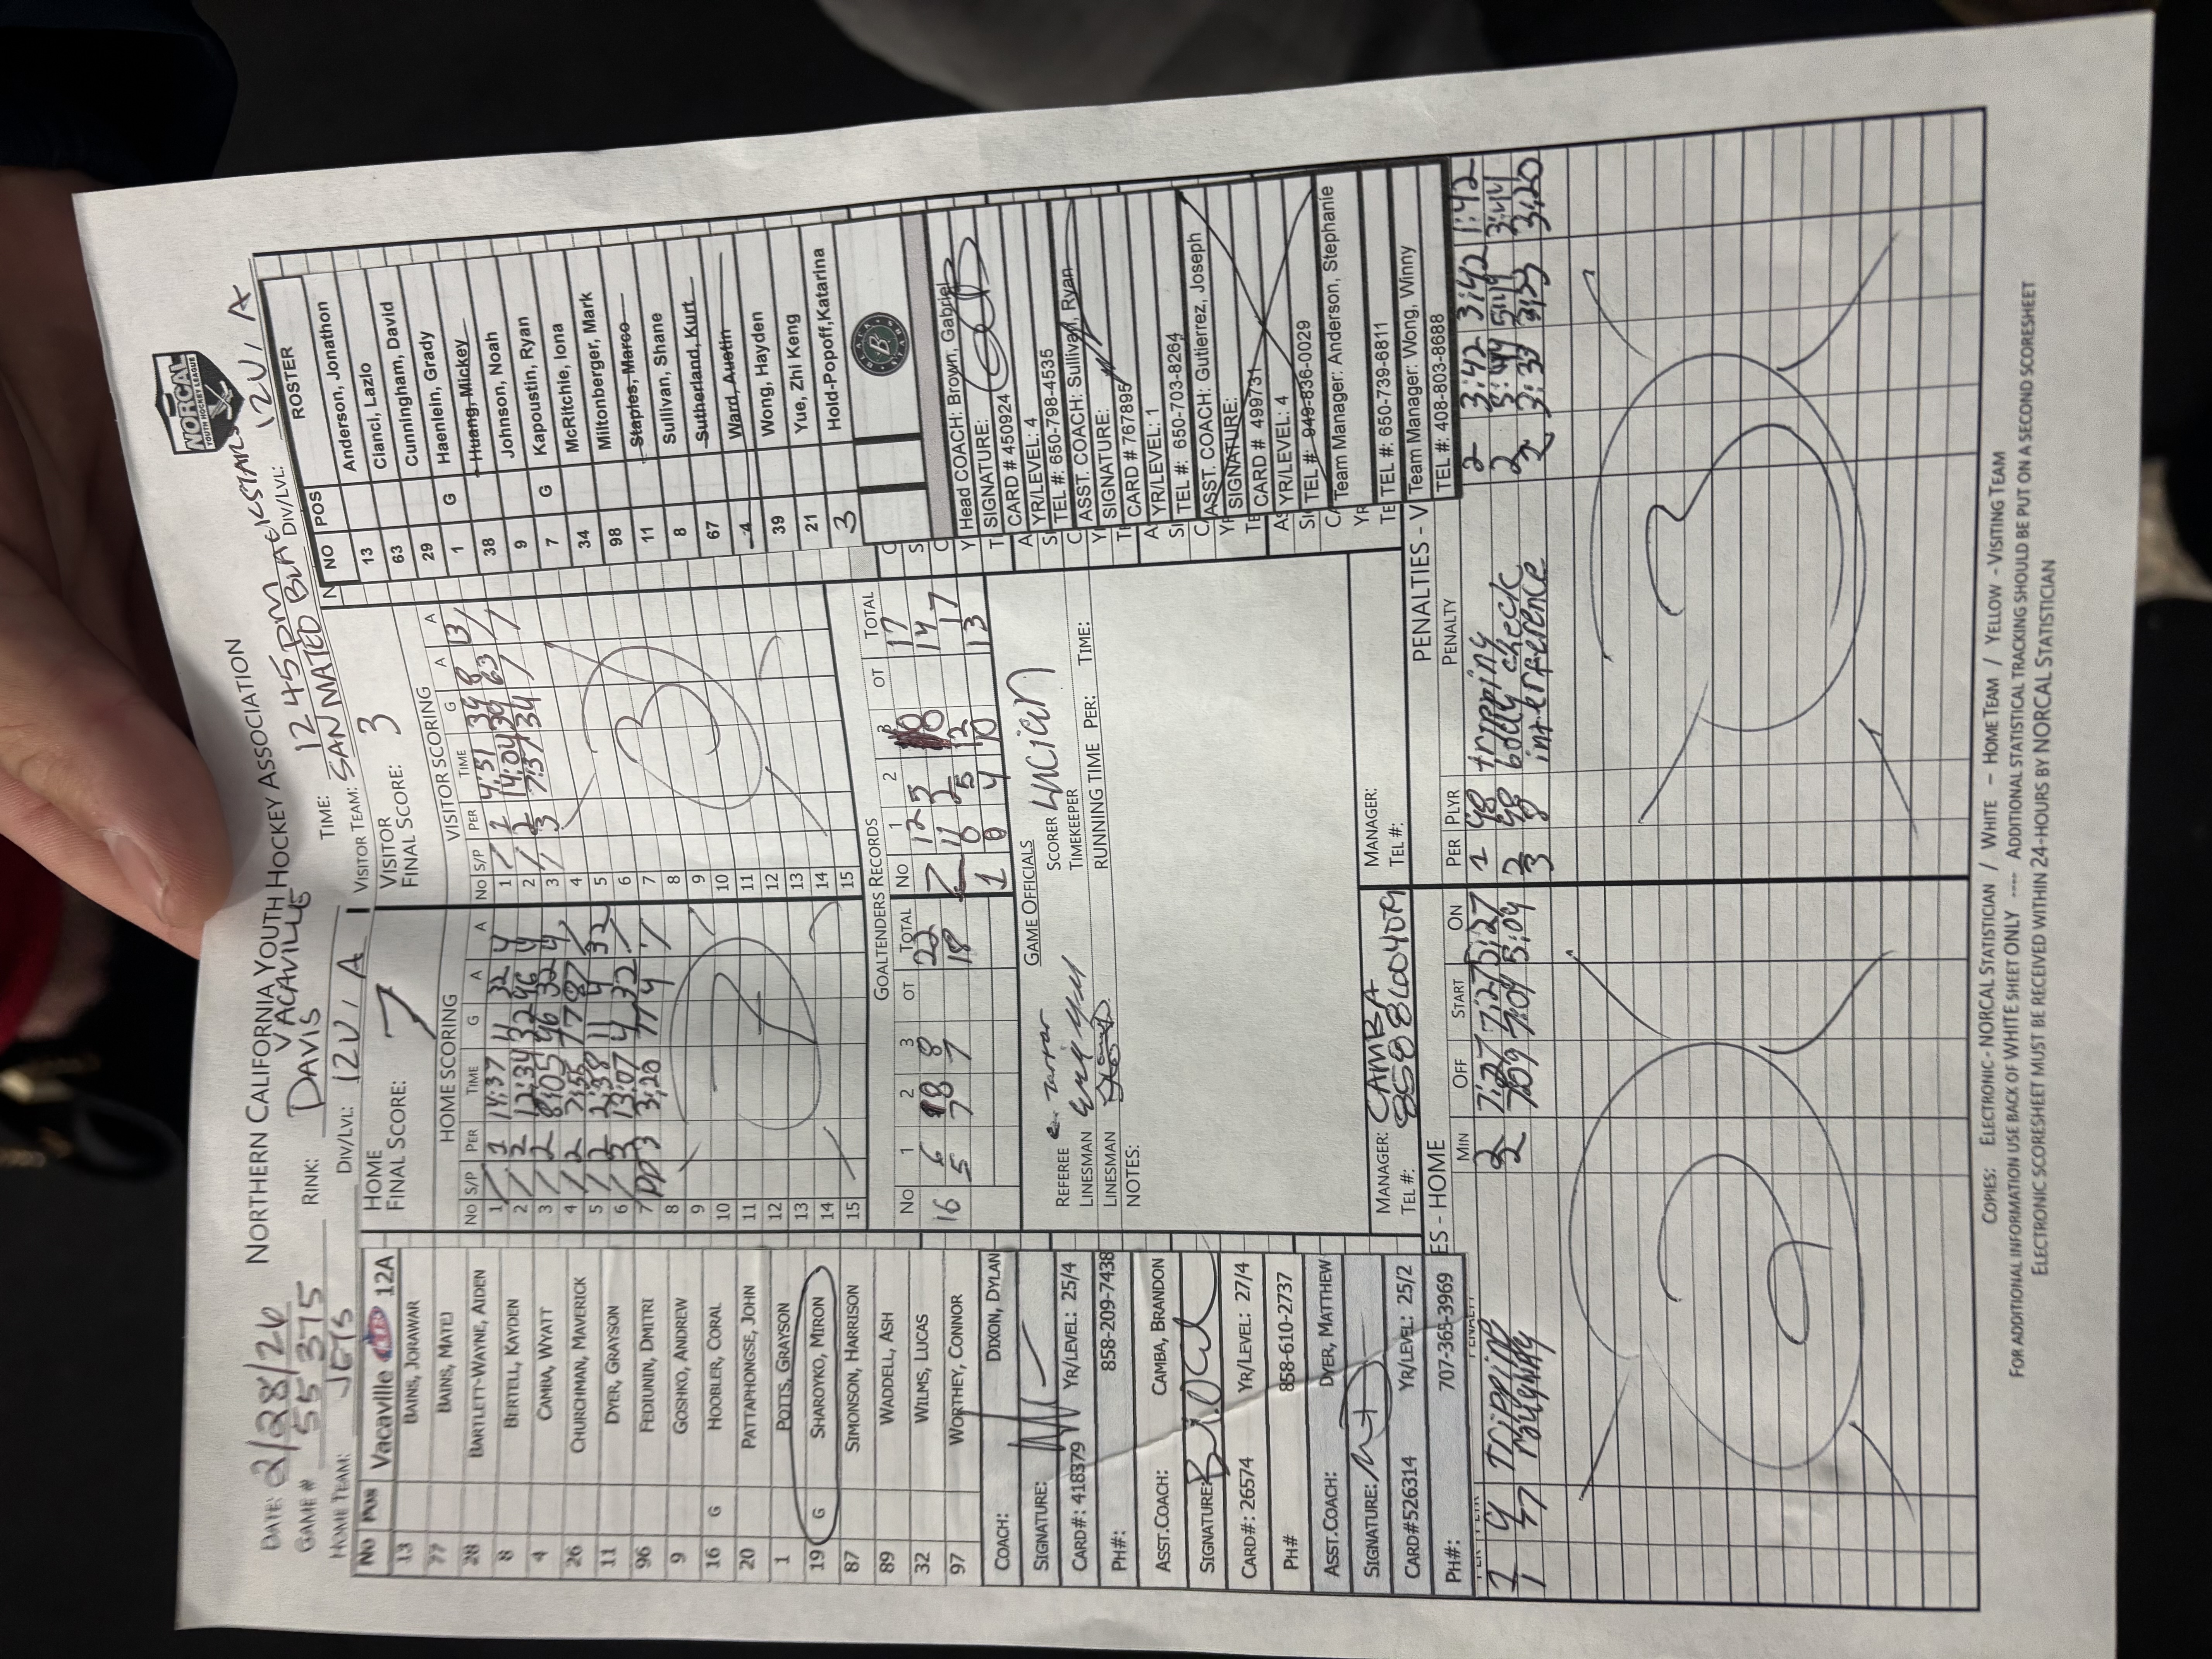 NORCAL
YOUTH HOCKEY LEAGUE
NORTHERN CALIFORNIA YOUTH HOCKEY ASSOCIATION
DATE: 2/28/26
VACAVILLE
12 45 pm
GAME # 55375
RINK: DAVIS
TIME:
HOME TEAM: JETS
DIV/LVL: 12U A
VISITOR TEAM: SAN MATEO BLACKSTARS
DIV/LVL: 12U A
No Pos Vacaville 12A
13 BAINS, JORAWAR
77 BAINS, MATEJ
28 BARTLETT-WAYNE, AIDEN
8 BERTELL, KAYDEN
4 CAMBA, WYATT
26 CHURCHMAN, MAVERICK
11 DYER, GRAYSON
96 FEDUNIN, DMITRI
9 GOSHKO, ANDREW
16 G HOOBLER, CORAL
20 PATTAPHONGSE, JOHN
1 POTTS, GRAYSON
19 G SHAROYKO, MIRON
87 SIMONSON, HARRISON
89 WADDELL, ASH
32 WILMS, LUCAS
97 WORTHEY, CONNOR
COACH: DIXON, DYLAN
SIGNATURE:
CARD#: 418379 YR/LEVEL: 25/4
PH#: 858-209-7438
ASST.COACH: CAMBA, BRANDON
SIGNATURE:
CARD#: 26574 YR/LEVEL: 27/4
PH# 858-610-2737
ASST.COACH: DYER, MATTHEW
SIGNATURE:
CARD#526314 YR/LEVEL: 25/2
PH#: 707-365-3969
HOME
FINAL SCORE: 7
VISITOR
FINAL SCORE: 3
HOME SCORING
No S/P PER TIME G A A
1 / 1 14:37 11 32 4
2 / 2 12:34 32 96 4
3 / 2 8:05 96 32 4
4 / 2 7:55 77 87 /
5 / 2 2:38 11 4 32
6 / 3 13:07 4 32 /
7 PP 3 3:20 77 4 /
8
9
10
11
12
13
14
15
7
VISITOR SCORING
No S/P PER TIME G A A
1 / 1 4:31 34 8 13
2 / 2 14:04 34 63 /
3 / 3 7:37 34 / /
4
5
6
7
8
9
10
11
12
13
14
15
3
GOALTENDERS RECORDS
No 1 2 3 OT TOTAL
6 8 8 22
16 5 7 7 18
No 1 2 3 OT TOTAL
7 12 5 0 17
11 0 14
5 12 17
1 0 4 10 13
GAME OFFICIALS
REFEREE
LINESMAN
LINESMAN
NOTES:
SCORER Lucian
TIMEKEEPER
RUNNING TIME PER: TIME:
MANAGER: CAMBA
TEL #:
MANAGER:
TEL #:
ROSTER
NO POS
13 Anderson, Jonathon
63 Cianci, Lazlo
29 Cunningham, David
1 G Haenlein, Grady
38 Huang, Mickey
9 Johnson, Noah
7 G Kapoustin, Ryan
34 McRitchie, Iona
98 Miltonberger, Mark
11 Staples, Marco
8 Sullivan, Shane
67 Sutherland, Kurt
4 Ward, Austin
39 Wong, Hayden
21 Yue, Zhi Keng
3 Hold-Popoff,Katarina
Head COACH: Brown, Gabriel
SIGNATURE:
CARD # 450924
YR/LEVEL: 4
TEL #: 650-798-4535
ASST. COACH: Sullivan, Ryan
SIGNATURE:
CARD # 767895
YR/LEVEL: 1
TEL #: 650-703-8264
ASST. COACH: Gutierrez, Joseph
SIGNATURE:
CARD # 499731
YR/LEVEL: 4
TEL #: 949-836-0029
Team Manager: Anderson, Stephanie
TEL #: 650-739-6811
Team Manager: Wong, Winny
TEL #: 408-803-8688
ES - HOME
MIN OFF START ON
1 4 Tripping 2 7:27 7:27 5:27
1 77 roughing 2 7:09 7:09 5:09
2
PENALTIES - V
PER PLYR PENALTY
1 98 tripping 2 3:42 3:42 1:42
2 98 body check 2 5:44 5:44 3:44
3 8 interference 2 3:33 3:33 3:20
3
COPIES: ELECTRONIC - NORCAL STATISTICIAN / WHITE - HOME TEAM / YELLOW - VISITING TEAM
FOR ADDITIONAL INFORMATION USE BACK OF WHITE SHEET ONLY ---- ADDITIONAL STATISTICAL TRACKING SHOULD BE PUT ON A SECOND SCORESHEET
ELECTRONIC SCORESHEET MUST BE RECEIVED WITHIN 24-HOURS BY NORCAL STATISTICIAN